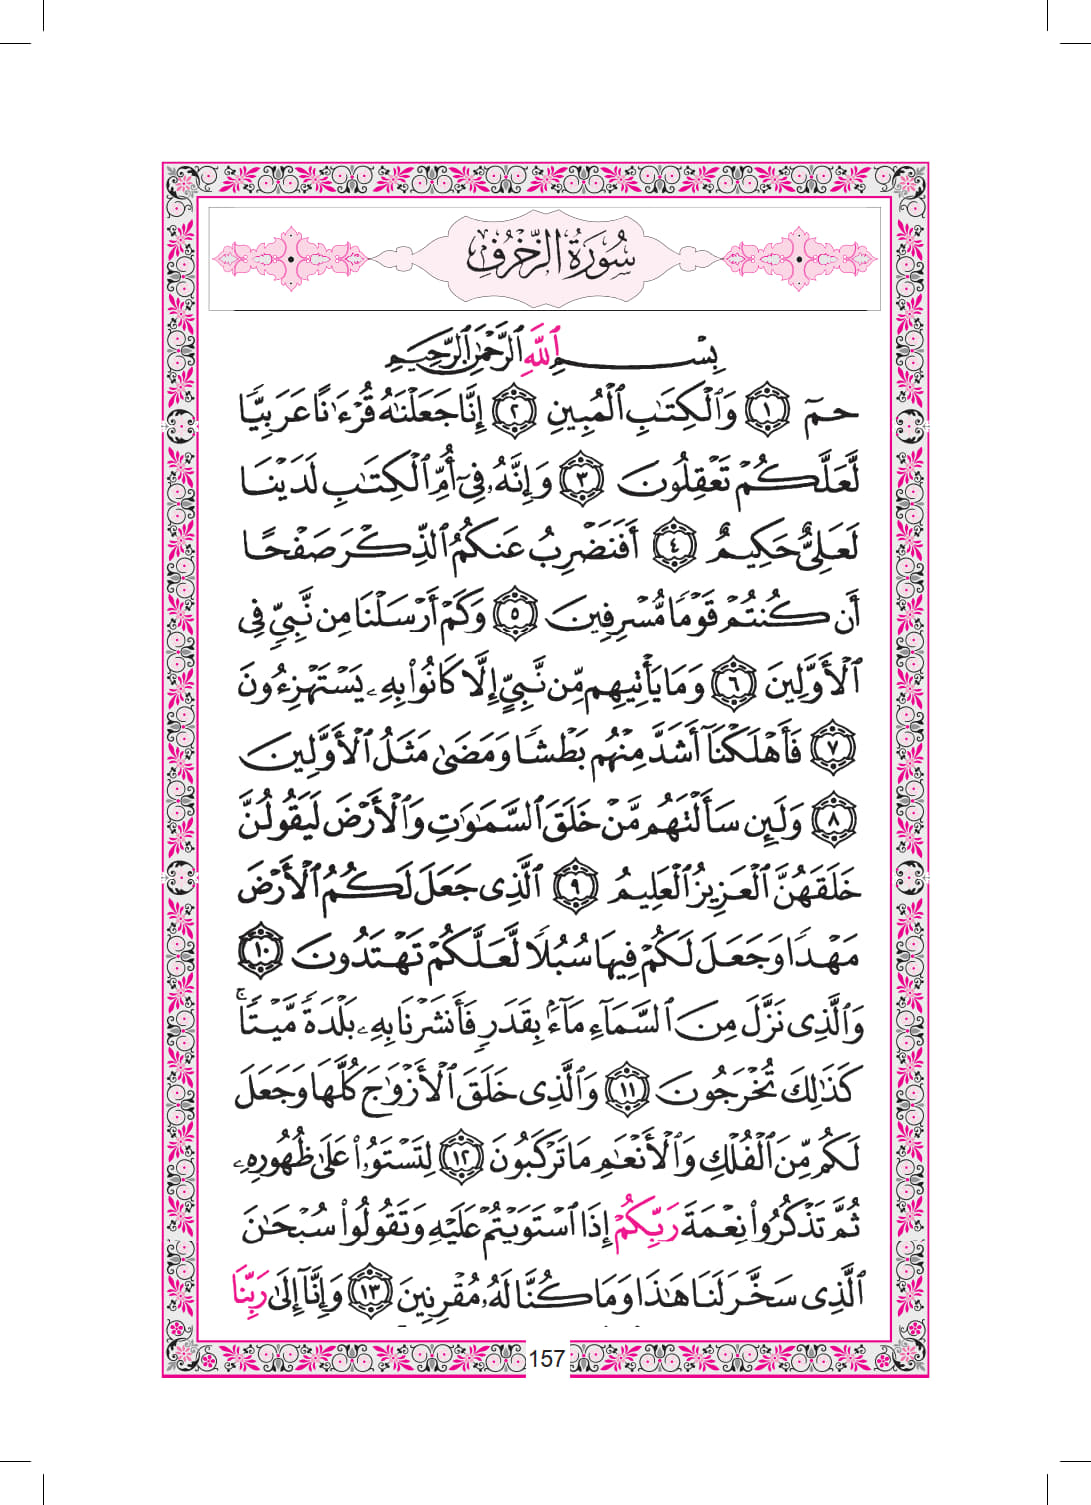 سُورَةُ الزُّخْرُفِ
بِسْمِ ٱللَّهِ ٱلرَّحْمَٰنِ ٱلرَّحِيمِ
حمٓ ﴿١﴾ وَٱلْكِتَٰبِ ٱلْمُبِينِ ﴿٢﴾ إِنَّا جَعَلْنَٰهُ قُرْءَٰنًا عَرَبِيًّا
لَّعَلَّكُمْ تَعْقِلُونَ ﴿٣﴾ وَإِنَّهُۥ فِىٓ أُمِّ ٱلْكِتَٰبِ لَدَيْنَا
لَعَلِىٌّ حَكِيمٌ ﴿٤﴾ أَفَنَضْرِبُ عَنكُمُ ٱلذِّكْرَ صَفْحًا
أَن كُنتُمْ قَوْمًا مُّسْرِفِينَ ﴿٥﴾ وَكَمْ أَرْسَلْنَا مِن نَّبِىٍّ فِى
ٱلْأَوَّلِينَ ﴿٦﴾ وَمَا يَأْتِيهِم مِّن نَّبِىٍّ إِلَّا كَانُوا۟ بِهِۦ يَسْتَهْزِءُونَ
﴿٧﴾ فَأَهْلَكْنَآ أَشَدَّ مِنْهُم بَطْشًا وَمَضَىٰ مَثَلُ ٱلْأَوَّلِينَ
﴿٨﴾ وَلَئِن سَأَلْتَهُم مَّنْ خَلَقَ ٱلسَّمَٰوَٰتِ وَٱلْأَرْضَ لَيَقُولُنَّ
خَلَقَهُنَّ ٱلْعَزِيزُ ٱلْعَلِيمُ ﴿٩﴾ ٱلَّذِى جَعَلَ لَكُمُ ٱلْأَرْضَ
مَهْدًا وَجَعَلَ لَكُمْ فِيهَا سُبُلًا لَّعَلَّكُمْ تَهْتَدُونَ ﴿١٠﴾
وَٱلَّذِى نَزَّلَ مِنَ ٱلسَّمَآءِ مَآءًۢ بِقَدَرٍ فَأَنشَرْنَا بِهِۦ بَلْدَةً مَّيْتًا ۚ
كَذَٰلِكَ تُخْرَجُونَ ﴿١١﴾ وَٱلَّذِى خَلَقَ ٱلْأَزْوَٰجَ كُلَّهَا وَجَعَلَ
لَكُم مِّنَ ٱلْفُلْكِ وَٱلْأَنْعَٰمِ مَا تَرْكَبُونَ ﴿١٢﴾ لِتَسْتَوُۥا۟ عَلَىٰ ظُهُورِهِۦ
ثُمَّ تَذْكُرُوا۟ نِعْمَةَ رَبِّكُمْ إِذَا ٱسْتَوَيْتُمْ عَلَيْهِ وَتَقُولُوا۟ سُبْحَٰنَ
ٱلَّذِى سَخَّرَ لَنَا هَٰذَا وَمَا كُنَّا لَهُۥ مُقْرِنِينَ ﴿١٣﴾ وَإِنَّآ إِلَىٰ رَبِّنَا
157